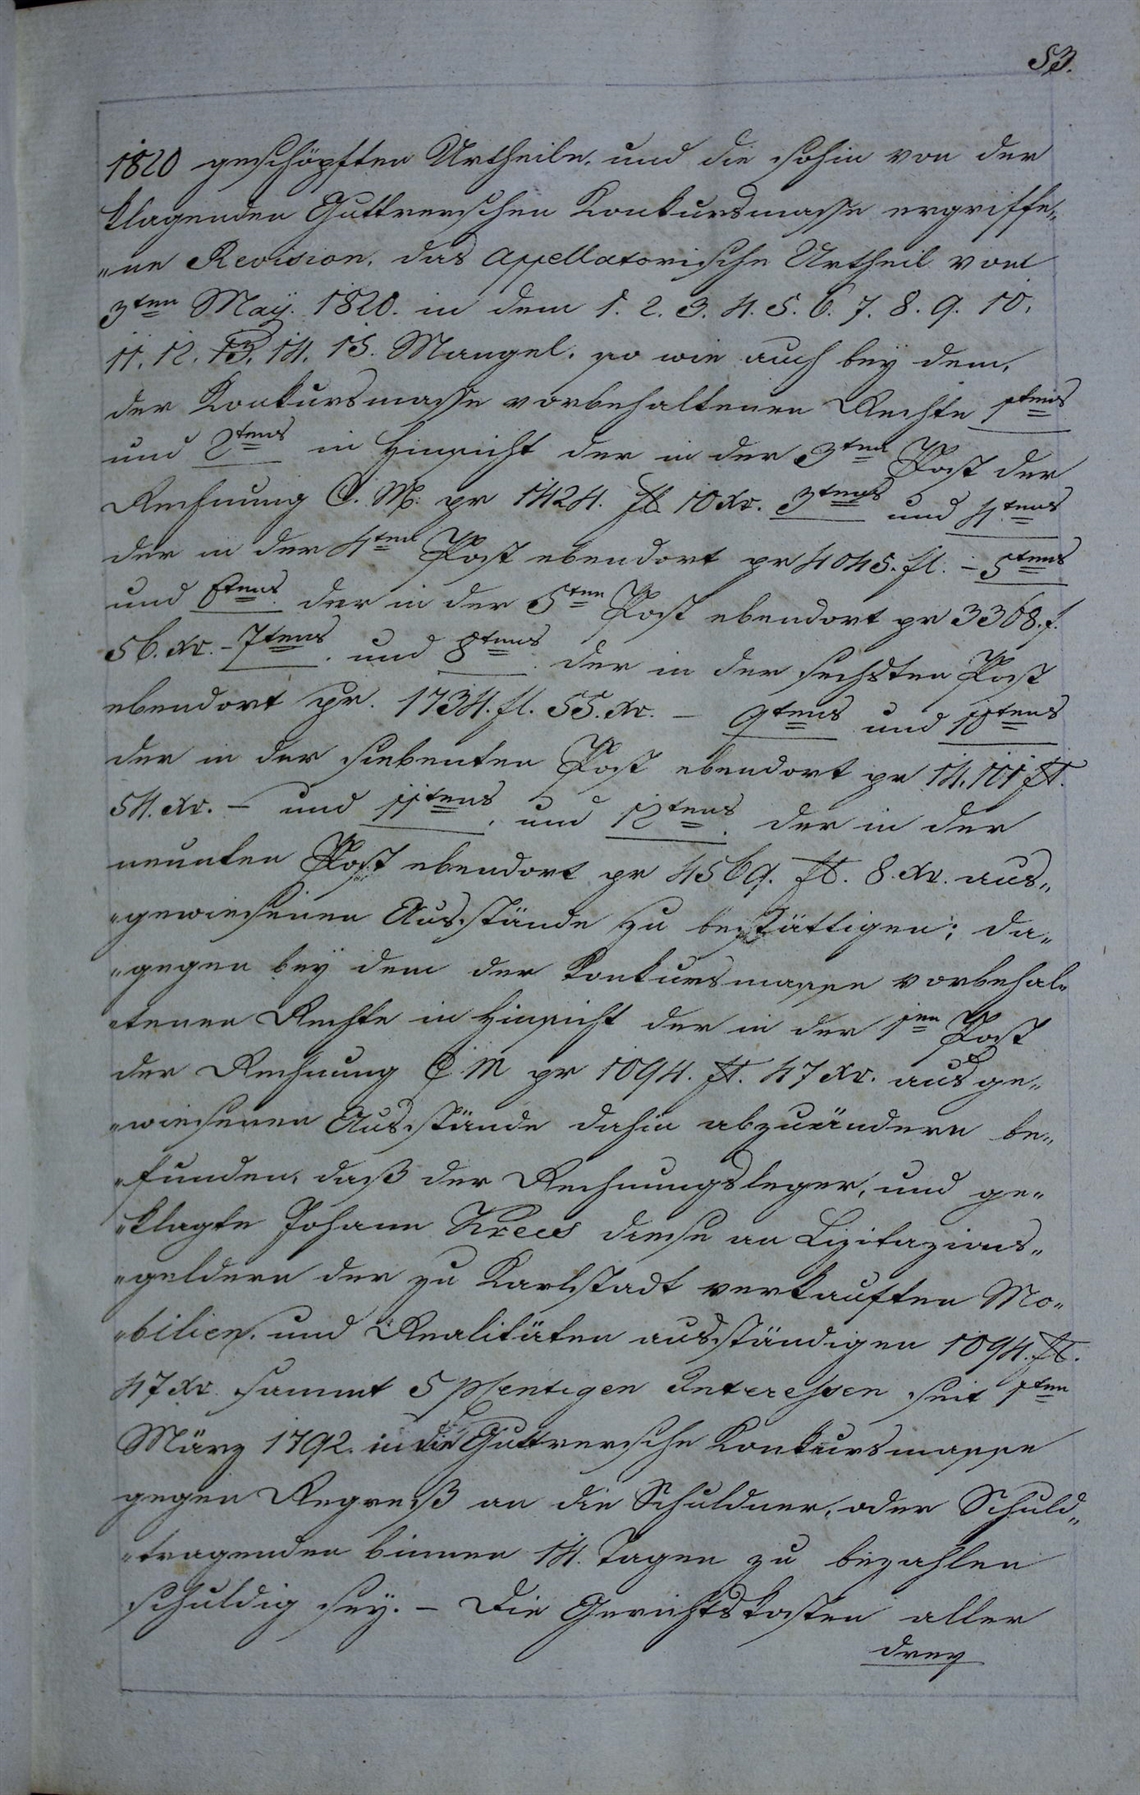 53.
1820 geschöpften Urtheile, und die sohin von der
klagenden Guttnerschen Konkursmasse ergriffe„
„ne Revision, das Appellatorische Urtheil vom
3ten Maÿ. 1820. in dem 1. 2. 3. 4. 5. 6. 7. 8. 9. 10.
11. 12. 13. 14. 15. Mangel, so wie auch beÿ dem,
der Konkursmasse vorbehaltenen Rechte 1tens
und 2tens in Hinsicht der in der 3ten Post der
Rechnung C. M. pr 1424. fl 10 xr. 3tens und 4.tens
der in der 4ten Post ebendort pr 4045. fl. – 5tens
und 6tens. der in der 5ten Post ebendort pr 3368. f.
56. xr. – 7tens. und 8tens. der in der sechsten Post
ebendort pr. 1734. fl. 55. xr. – 9tens und 10tens
der in der siebenten Post ebendort pr 14,101 fl.
54. xr. – und 11tens, und 12tens. der in der
neunten Post ebendort pr 4569. fl. 8. xr. aus„
„gewiesenen Ausstände zu bestättigen; da„
„gegen beÿ dem der Konkursmasse vorbehal„
„tenen Rechte in Hinsicht der in der 1ten Post
der Rechnung C. M pr 1094. fl. 47 xr. ausge„
„wiesenen Ausstände dahin abzuändern be„
„funden, daß der Rechnungsleger, und ge„
„klagte Johann diese an Lizitazions„
„geldern der zu Karlstadt verkauften Mo„
„bilien, und Realitäten ausständigen 1094. fl.
47 xr. sammt 5 pzentigen Interessen seit 1ten
März 1792. in die Guttnersche Konkursmasse
gegen Regreß an die Schuldner, oder Schuld„
„tragenden binnen 14. Tagen zu bezahlen
schuldig seÿ. – Die Gerichtskosten aller
dreÿ